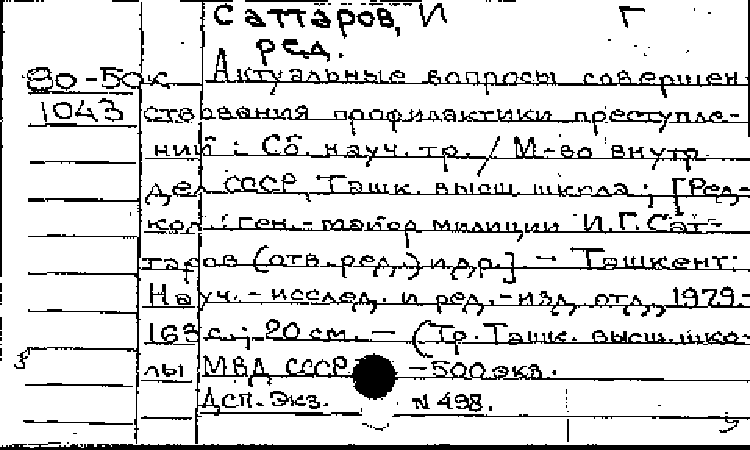 Саттаров, И Г
ред.
80-50к Актуальные вопросы совершен
1043 ствования профилактики преступле-
ний : Сб. науч. тр. / М-во внутр
дел СССР, Ташк. высш. школа ; [Ред-
кол.: ген.-майор милиции И.Г. Сат-
таров (отв. ред.) и др.] — Ташкент:
Науч.-исслед. и ред.-изд. отд., 1979.-
163 с.; 20 см. — (Тр. Ташк. высш. шко-
лы МВД СССР —500 экз.
Дсп. Экз. N 498.